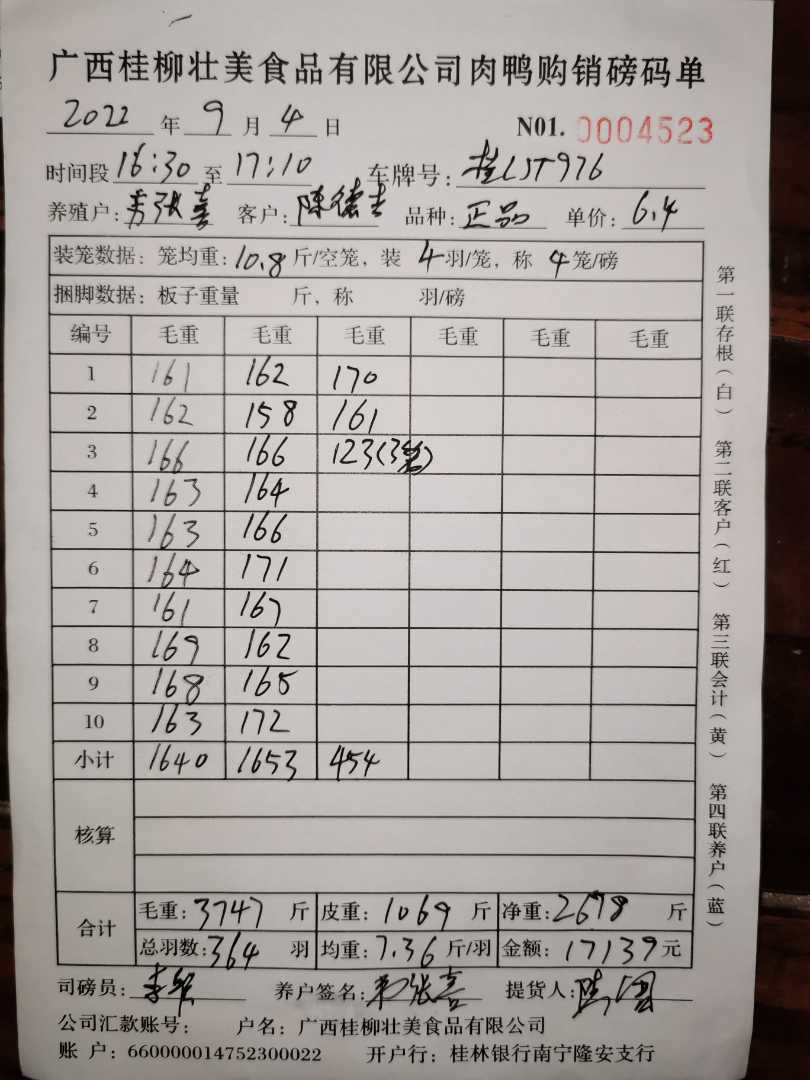 广西桂柳壮美食品有限公司肉鸭购销磅码单
2022 年 9 月 4 日 N01. 0004523
时间段 16:30 至 17:10 车牌号: 桂LJT976
养殖户: 张喜 客户: 陈德 品种: 正品 单价: 6.4
装笼数据: 笼均重: 10.8 斤/空笼, 装 4 羽/笼, 称 4 笼/磅
捆脚数据: 板子重量 斤, 称 羽/磅
编号 毛重 毛重 毛重 毛重 毛重 毛重
1 161 162 170
2 162 158 161
3 166 166 123(3笼)
4 163 164
5 163 166
6 164 171
7 161 167
8 169 162
9 168 165
10 163 172
小计 1640 1653 454
核算
合计 毛重: 3747 斤 皮重: 1069 斤 净重: 2678 斤
总羽数: 364 羽 均重: 7.36 斤/羽 金额: 17139 元
司磅员: 养户签名: 张喜 提货人:
公司汇款账号: 户名: 广西桂柳壮美食品有限公司
账 户: 660000014752300022 开户行: 桂林银行南宁隆安支行
第一联存根(白) 第二联客户(红) 第三联会计(黄) 第四联养户(蓝)